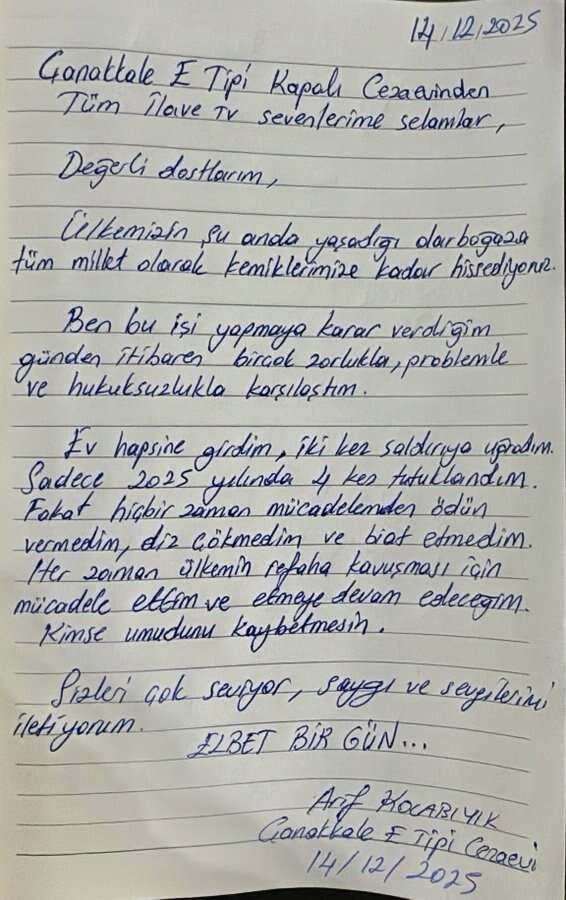 14/12/2025
Çanakkale E Tipi Kapalı Cezaevinden
Tüm İlave TV sevenlerime selamlar,
Değerli dostlarım,
Ülkemizin şu anda yaşadığı darboğaza
tüm millet olarak kemiklerimize kadar hissediyoruz.
Ben bu işi yapmaya karar verdiğim
günden itibaren birçok zorlukla, problemle
ve hukuksuzlukla karşılaştım.
Ev hapsine girdim, iki kez saldırıya uğradım.
Sadece 2025 yılında 4 kez tutuklandım.
Fakat hiçbir zaman mücadelemden ödün
vermedim, diz çökmedim ve biat etmedim.
Her zaman ülkemin refaha kavuşması için
mücadele ettim ve etmeye devam edeceğim.
Kimse umudunu kaybetmesin.
Sizleri çok seviyor, saygı ve sevgilerimi
iletiyorum.
ELBET BİR GÜN...
Arif KOCABIYIK
Çanakkale E Tipi Cezaevi
14/12/2025